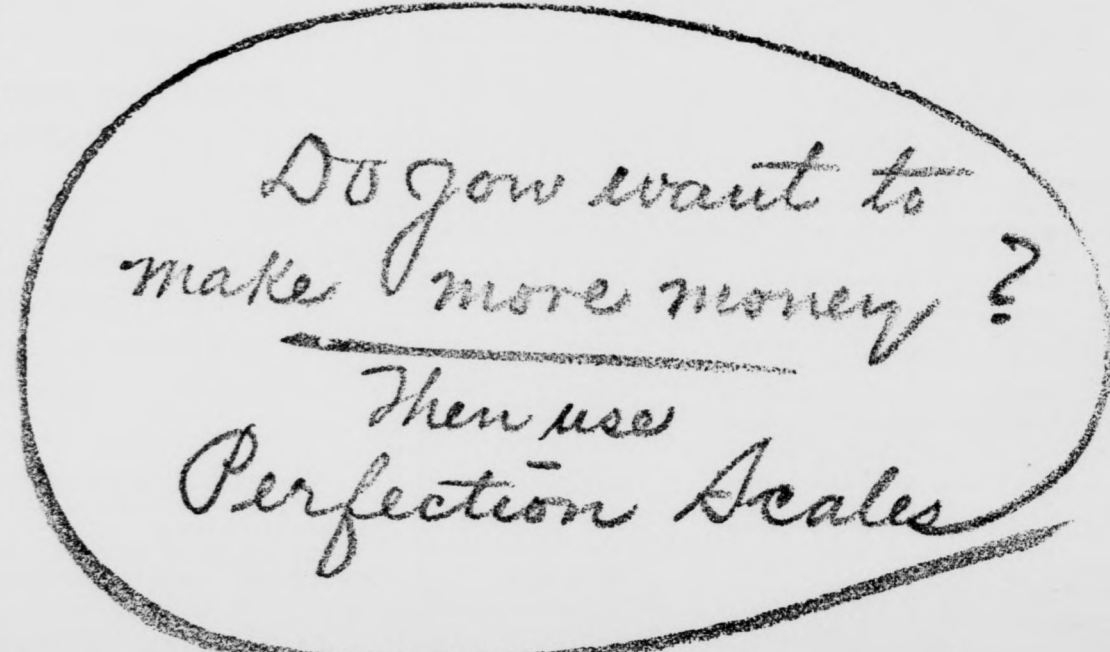 Do you want to
make more money?
Then use
Perfection Scales